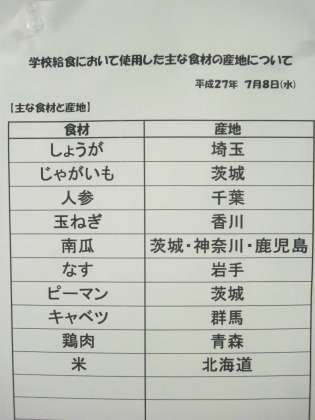 学校給食において使用した主な食材の産地について
平成27年 7月8日(水)
【主な食材と産地】
食材 産地
しょうが 埼玉
じゃがいも 茨城
人参 千葉
玉ねぎ 香川
南瓜 茨城・神奈川・鹿児島
なす 岩手
ピーマン 茨城
キャベツ 群馬
鶏肉 青森
米 北海道